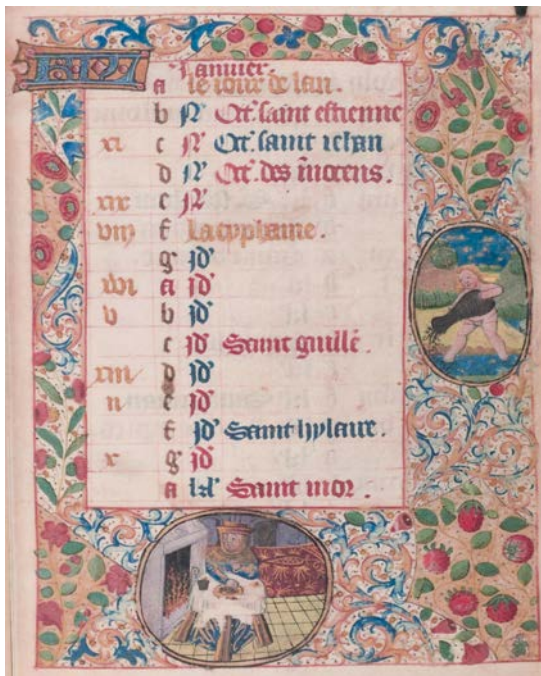 Januier.
a le iour de lan.
b N Oct. saint estienne
xi c N Oct. saint iehan
d N Oct. des inocens.
xix e N
viij f La typhaine.
g jd
xvi a jd
v b jd
c jd Saint guille.
xiii d jd
ii e jd
f jd Saint hylaire.
x g jd
a kl Saint mor.